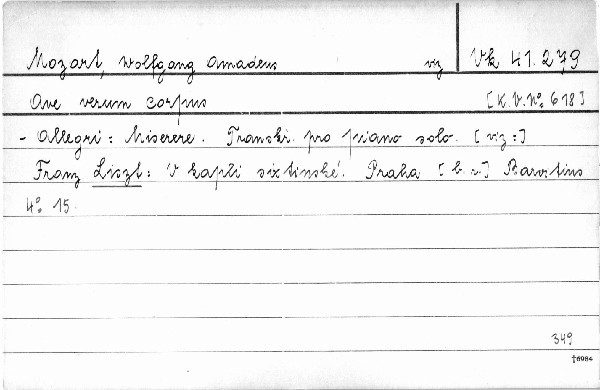 Mozart, Wolfgang Amadeus viz Vk 41.279
Ave verum corpus [K.V.No: 618]
- Allegri: Miserere. Transkr. pro piano solo. [viz:]
Franz Liszt: V kapli sixtinské. Praha [b.r.] Barvitius
4o: 15.
349
†6984